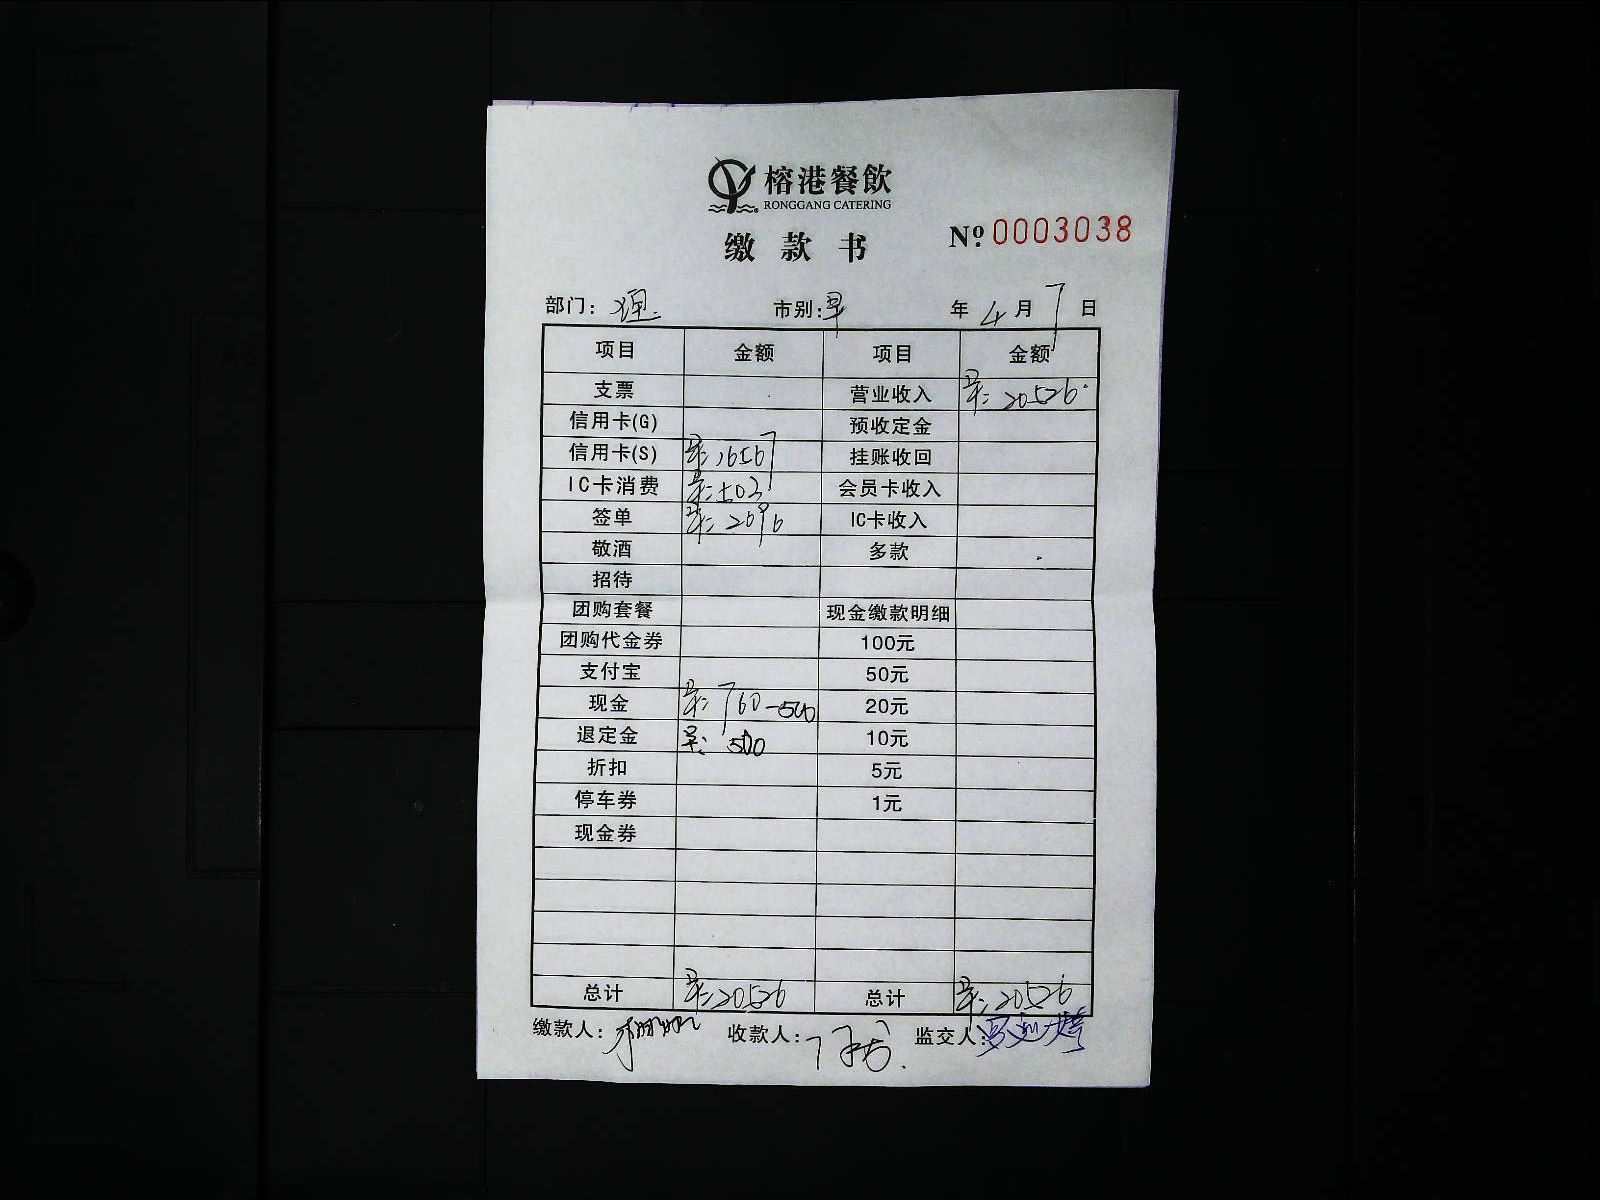 榕港餐飲
RONGGANG CATERING
缴款书 Nº 0003038
部门： 市别：早 年 4 月 7 日
项目 金额 项目 金额
支票 营业收入 早：20526
信用卡(G) 预收定金
信用卡(S) 早：16567 挂账收回
IC卡消费 早：503 会员卡收入
签单 早：2696 IC卡收入
敬酒 多款
招待
团购套餐 现金缴款明细
团购代金券 100元
支付宝 50元
现金 早：760-500 20元
退定金 早：500 10元
折扣 5元
停车券 1元
现金券
总计 早：20526 总计 早：20526
缴款人： 收款人： 监交人：